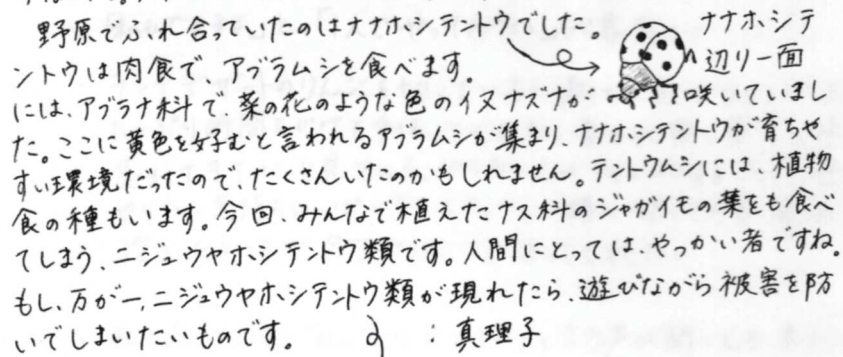 野原でふれ合っていたのはナナホシテントウでした。 ナナホシテ
ントウは肉食で、アブラムシを食べます。 辺り一面
には、アブラナ科で、菜の花のような色のイヌナズナが 咲いていまし
た。ここに黄色を好むと言われるアブラムシが集まり、ナナホシテントウが育ちや
すい環境だったので、たくさんいたのかもしれません。テントウムシには、植物
食の種もいます。今回、みんなで植えたナス科のジャガイモの葉をも食べ
てしまう、ニジュウヤホシテントウ類です。人間にとっては、やっかい者ですね。
もし、万が一、ニジュウヤホシテントウ類が現れたら、遊びながら被害を防
いでしまいたいものです。 : 真理子